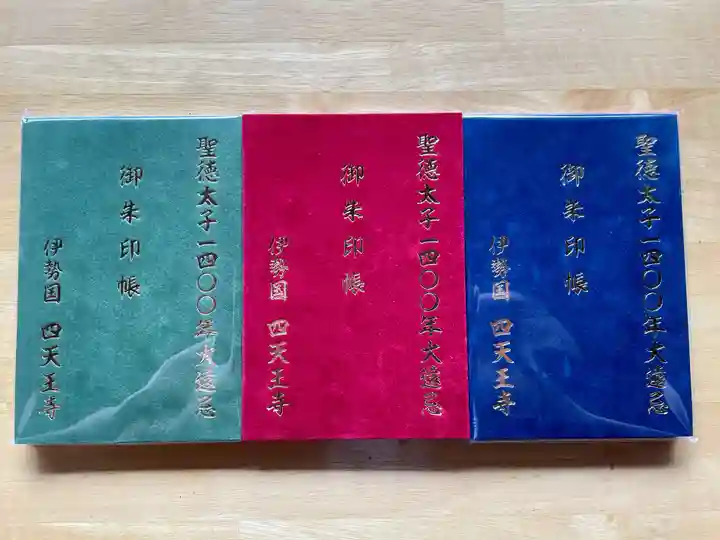 聖徳太子一四〇〇年大遠忌
御朱印帳
伊勢国 四天王寺
聖徳太子一四〇〇年大遠忌
御朱印帳
伊勢国 四天王寺
聖徳太子一四〇〇年大遠忌
御朱印帳
伊勢国 四天王寺